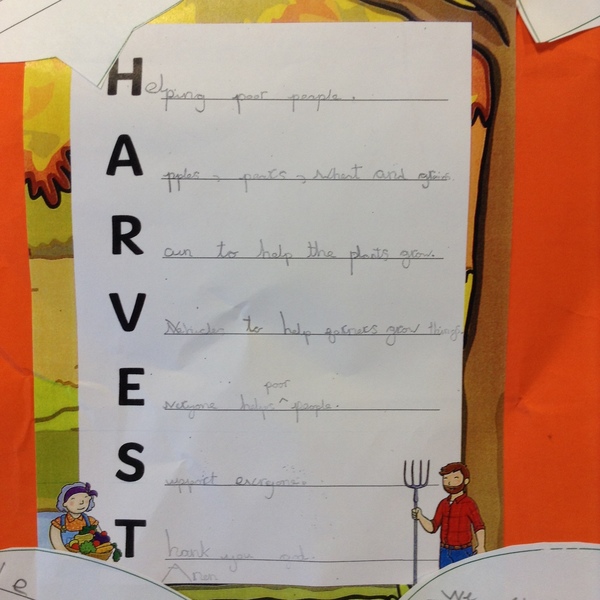 Helping poor people.
Apples, pears, wheat and grain.
Rain to help the plants grow.
Vehicles to help farmers grow things.
poor
Everyone helps ^ people.
Support everyone.
Thank you god.